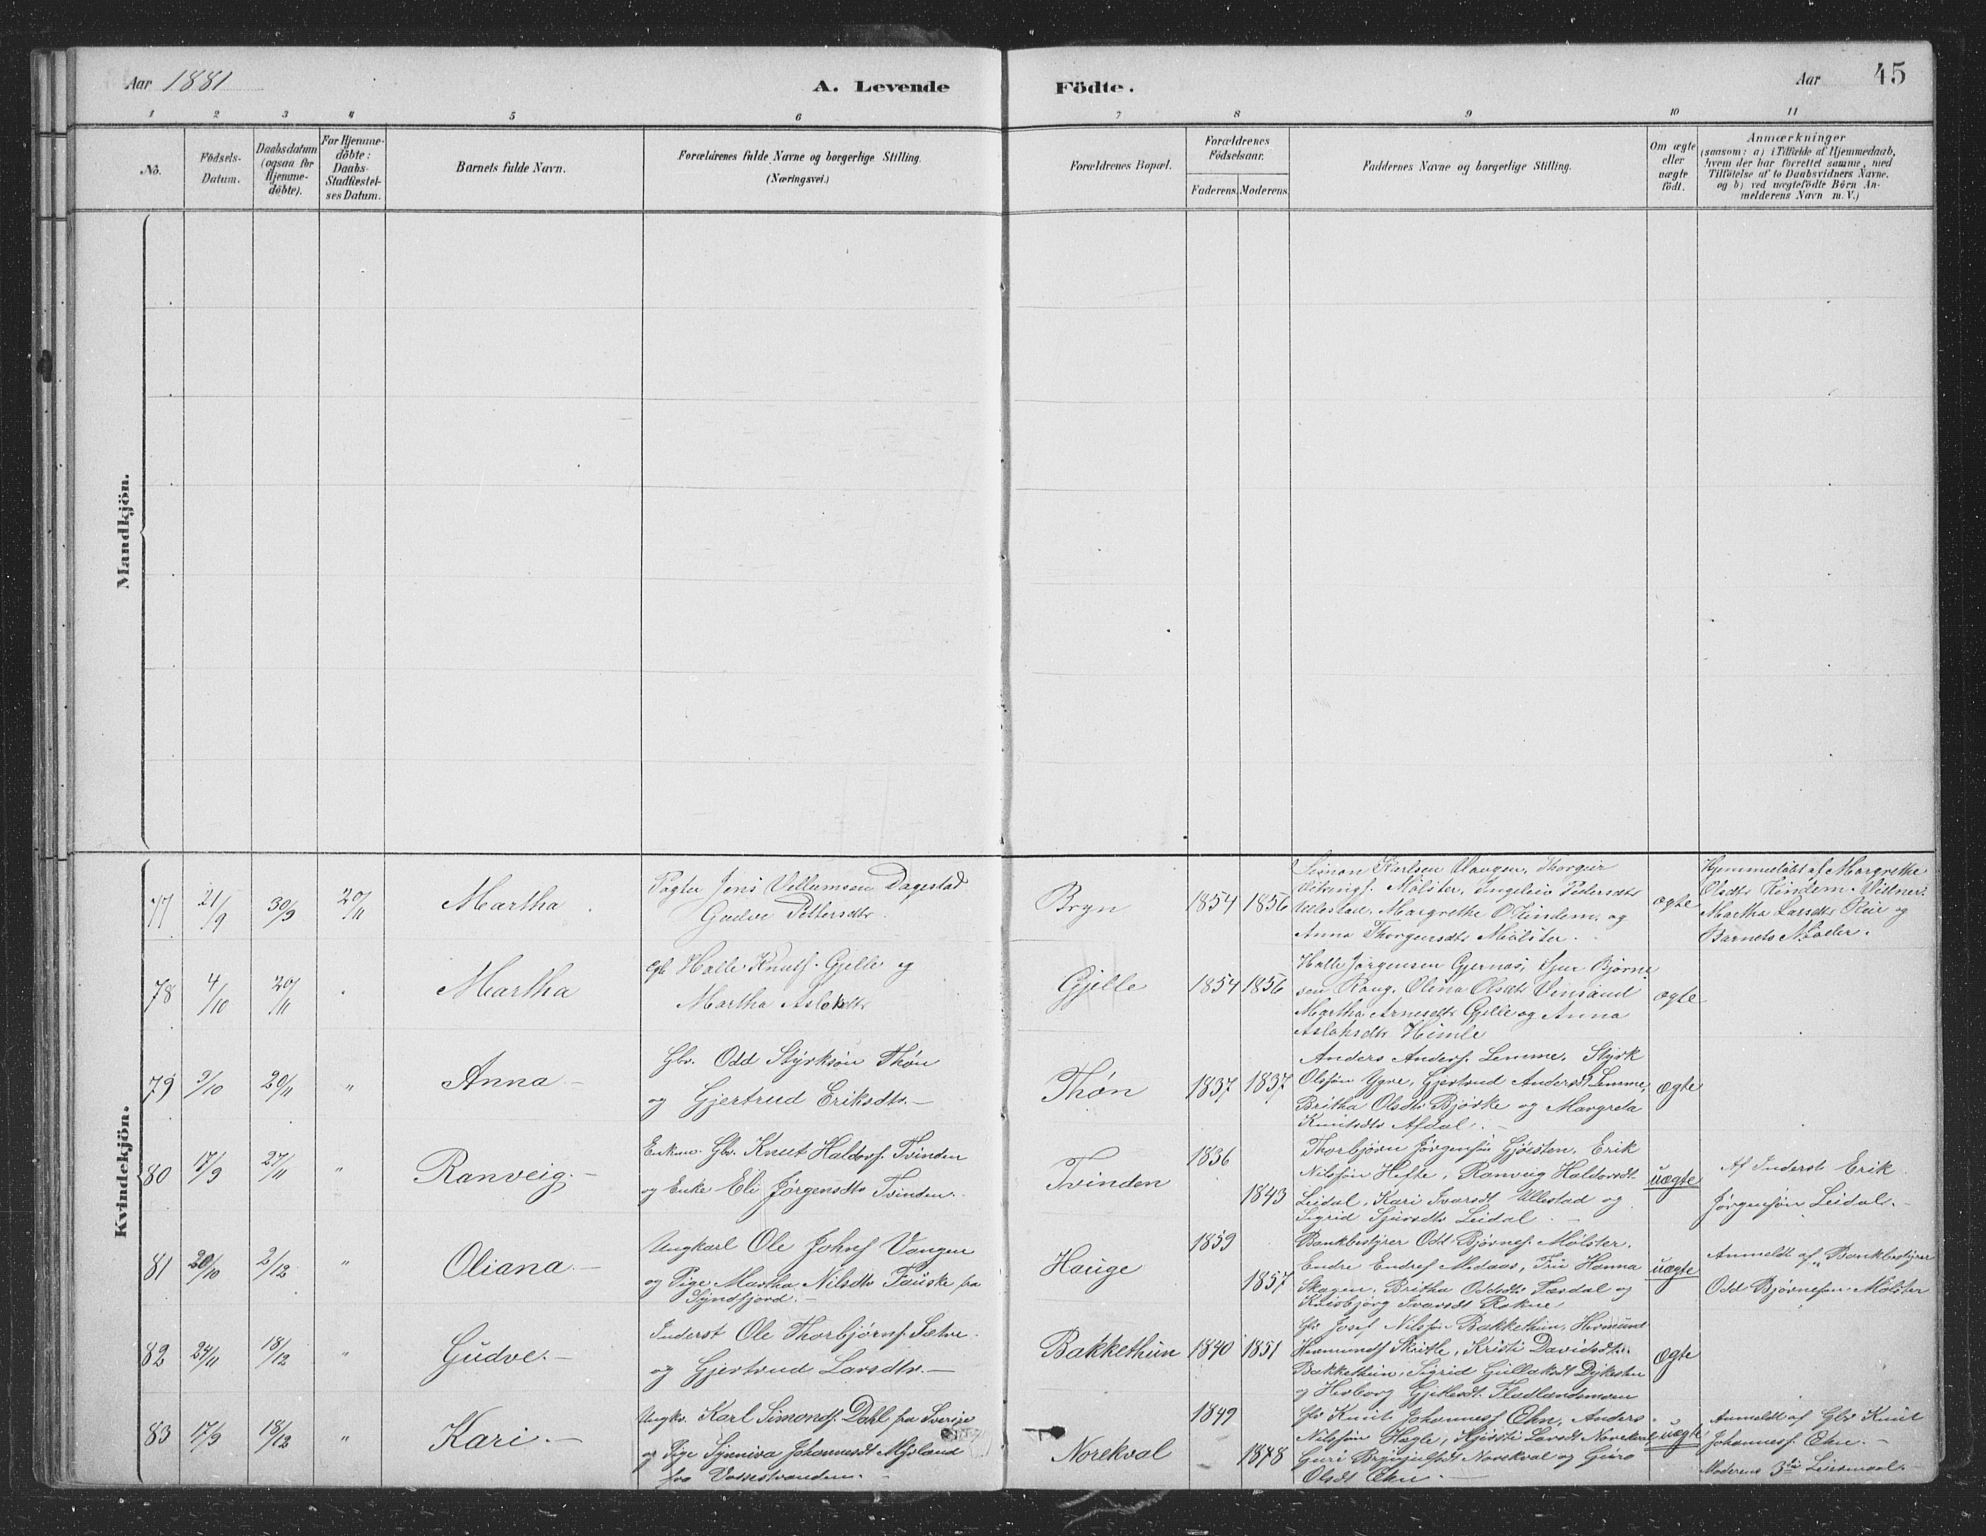 Aar 1881
A. Levende
Födte.
Aar
45
1 2 3 4 5 6 7 8 9 10 11
No.
Födsels-
Datum.
Daabsdatum
(ogsaa for
Hjemme-
döbte).
For Hjemme-
döbte:
Daabs-
Stadfæstel-
ses Datum.
Barnets fulde Navn.
Forældrenes fulde Navne og borgerlige Stilling.
(Næringsvei.)
Forældrenes Bopæl.
Forældrenes
Födselsaar.
Faderens. Moderens.
Faddernes Navne og borgerlige Stilling.
Om ægte
eller
uægte
födt.
Anmærkninger
(saasom: a) i Tilfælde af Hjemmedaab,
hvem der har forrettet samme, med
Tilföielse af to Daabsvidners Navne.
og b) ved uægtefödte Börn An-
melderens Navn m. V.)
Mandkjön.
Kvindekjön.
77 21/9 30/9 20/11 Martha
Jens Villumsen Dagestad
Gudve Pettersdtr.
Bryn 1854 1856
Simon Karlsen Vangen, Thorgeir
Vikingf. Mölster, Ingeleiv Petersdtr
Ullestad, Margrethe O. Rindem, og
Anna Thorgersdtr Mölster.
ægte
Hjemmedöbt af Margrethe
Olsdtr Rindem. Vidner:
Martha Larsdtr og
Barnets Moder.
78 4/10 20/11 Martha
Halle Knutf. Gjelle og
Martha Aslaksdtr
Gjelle 1854 1856
Halle Jørgensen Gjernæs, Sjur Bjørne
sen, Olena Olsdtr
Martha Arnesdtr Gjelle og Anna
Aslaksdtr Himle
ægte
79 9/10 20/11 " Anna.-
Gbr. Odd Styrkson Thøn
og Gjertrud Eriksdtr.-
Thøn 1837 1837
Anders Andersf. Lemme, Styrk
Olsføn Ygre, Gjertrud Andersdt Lemme,
Britha Olsdtr Bjørke og Margreta
Knutsdtr Afdal.-
ægte
80 17/9 27/11 " Ranveig.-
Enkem. Gbr. Knut Haldorf. Tvinden
og Enke Eli Jørgensdtr Tvinden.-
Tvinden 1836 1843
Thorbjørn Jørgensføn Gjøsten, Erik
Nilsføn Hefte, Ranveig Haldorsdt.
Leidal, Kari Ivarsdt Ullestad og
Sigrid Sjursdtr Leidal.-
uægte
Af Inderst Erik
Jørgensføn Leidal.-
81 20/10 2/12 " Oliana.-
Ungkarl Ole Johnf. Vangen
og Pige Martha Nilsdtr Tauske fra
Syndfjord.-
Hauge 1859 1857
Bankbestyrer Odd Bjørnef. Mølster.
Endre Endref. Medaas, Fru Hanna
Skagen, Britha Oddsdtr Færdal og
Kristbjørg Ivarsdt Rokne.
uægte
Anmeldt af Bankbestyrer
Odd Bjørnesøn Mølster
82 24/11 18/12 " Gudve.-
Inderst Ole Thorbjørnf. Sætre
og Gjertrud Larsdtr.-
Bakkethun 1840 1851
Gbr Josef Nilsføn Bakkethun, Hermund
Hermundf Skutle, Kristi Davidsdtr.
Bakkethun, Sigrid Gullaksdt Dykesten
og Herborg Fladlandsmoen
Ægte
83 17/9 18/12 " Kari.-
Ungkr. Karl Simondf. Dahl fra Sverige
og Pige Synniva Johannesdt Mjeland
fra Vossestranden.-
Norekval 1849 1848
Gbr Knut Johannesf Ehn, Anders
Nilsføn Hægle, Larsdt Norekval
Guri Brynjulfsdt Norekval og Guro
Olsdt Ehn.-
uægte
Anmeldt af Gbr Knut
Johannesf. Ehn.-
Moderens 3die Leiermaal.-